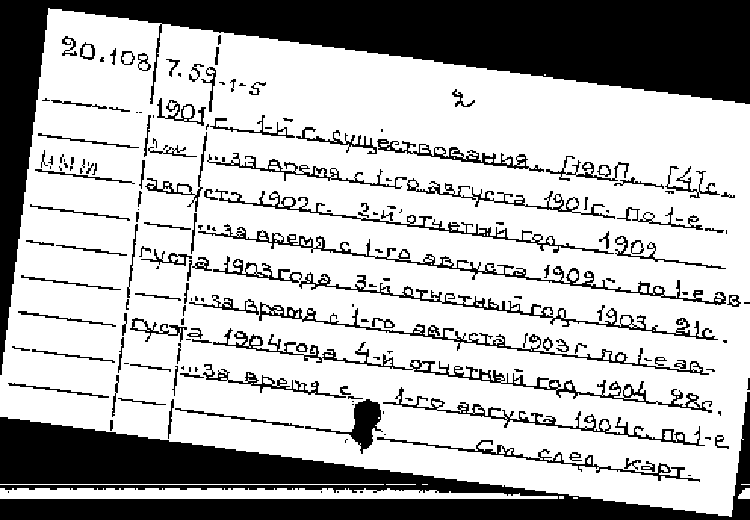 20.108 7.59-1-5
2
1901 г. 1-й г. существования. [1901]. [4]с.
...за время с 1-го августа 1901г. по 1-е
августа 1902г. 2-й отчетый год. 1902
...за время с 1-го августа 1902г. по 1-е ав-
густа 1903года. 3-й отчетный год. 1903. 21с.
...за время с 1-го августа 1903г. по 1-е ав-
густа 1904года. 4-й отчетный год 1904. 28с.
...за время с 1-го августа 1904г. по 1-е
См. след. карт.